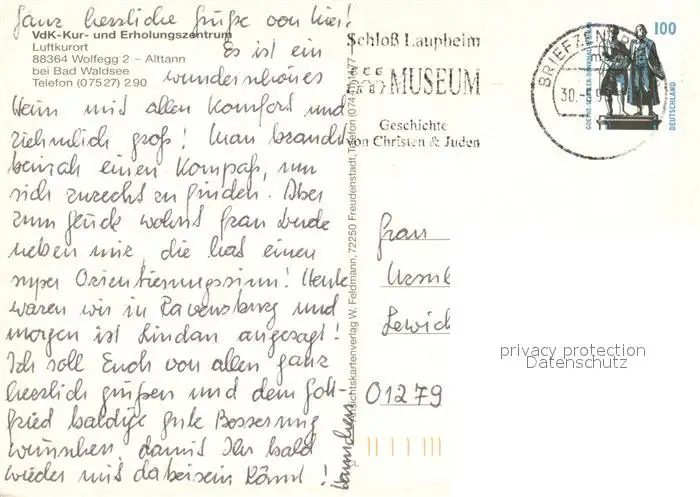 Ganz herzliche Grüße von hier!
VdK-Kur- und Erholungszentrum
Luftkurort
88364 Wolfegg 2 – Alttann
bei Bad Waldsee
Telefon (07527) 290
Es ist ein
wunderschönes
Heim mit allen Komfort und
ziehmlich groß! Man braucht
beinah einen Kompaß, um
sich zurecht zu finden. Aber
zum Glück wohnt Frau
neben mir, die hat einen
super Orientierungssinn! Heute
waren wir in Ravensburg und
morgen ist Lindau angesagt!
Ich soll Euch von allen ganz
herzlich grüßen und dem Gott-
fried baldige gute Besserung
wünschen, damit Ihr bald
wieder mit dabeisein könnt!
Ansichtskartenverlag W. Feldmann, 72250 Freudenstadt, Telefon
Schloß Laupheim
MUSEUM
Geschichte
von Christen & Juden
BRIEFZEN
30.
100
GOETHE-SCHILLER-DENKMAL WEIMAR
DEUTSCHLAND
Frau
Ursul
Lewich
01279
privacy protection
Datenschutz